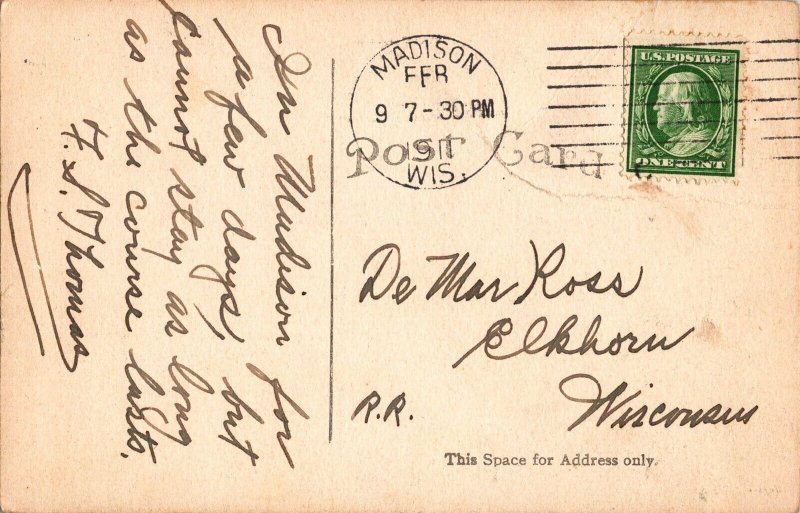 In Madison for
a few days, but
cannot stay as long
as the course lasts.
F. S. Thomas
MADISON
FEB
9 7-30 PM
1911
WIS.
U.S. POSTAGE
ONE CENT
Post Card
De Mar Ross
Elkhorn
R.R. Wisconsin
This Space for Address only.